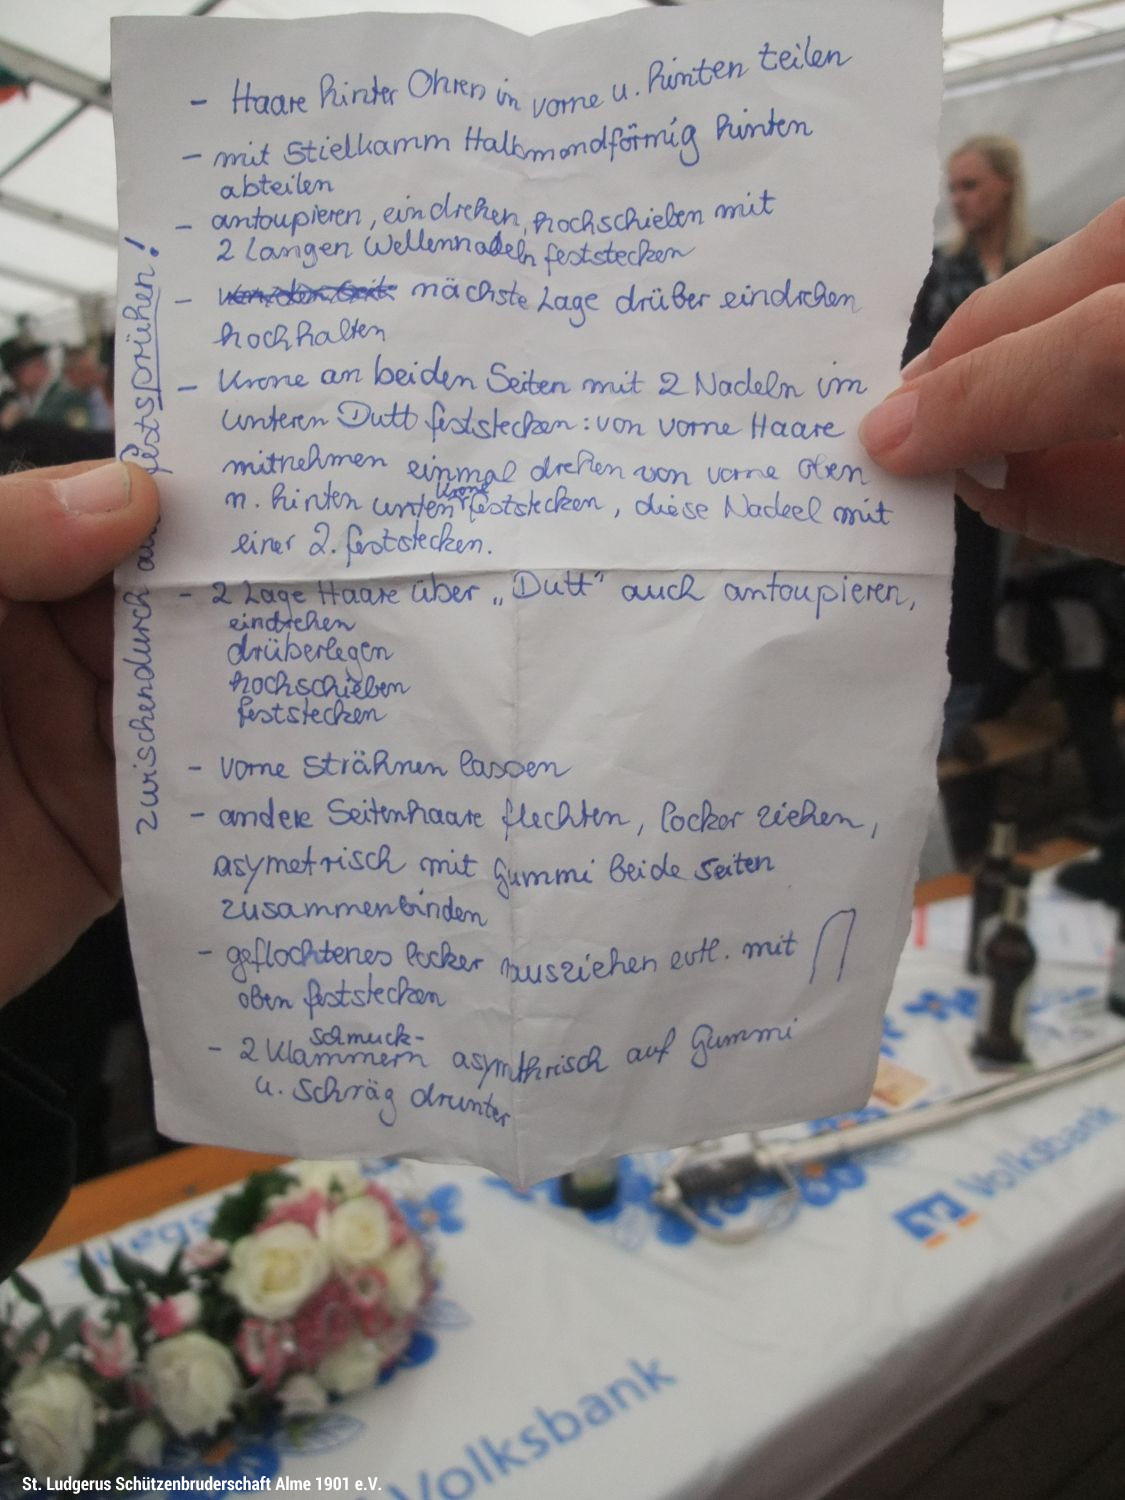 - Haare hinter Ohren in vorne u. hinten teilen
- mit Stielkamm Halbmondförmig hinten
abteilen
- antoupieren, eindrehen, hochschieben mit
2 Langen Wellennadeln feststecken
- nächste Lage drüber eindrehen
hochhalten
- Krone an beiden Seiten mit 2 Nadeln im
unteren Dutt feststecken: von vorne Haare
mitnehmen einmal drehen von vorne oben
n. hinten unten Krone feststecken, diese Nadel mit
einer 2. feststecken.
- 2 Lage Haare über „Dutt" auch antoupieren,
eindrehen
drüberlegen
hochschieben
feststecken
- vorne Strähnen lassen
- andere Seitenhaare flechten, locker ziehen,
asymetrisch mit Gummi beide Seiten
zusammenbinden
- geflochtenes locker ausziehen evtl. mit
oben feststecken
- 2 Schmuck-
Klammern auf Gummi
u. schräg drunter
zwischendurch festsprühen!
Volksbank
Volksbank
St. Ludgerus Schützenbruderschaft Alme 1901 e.V.